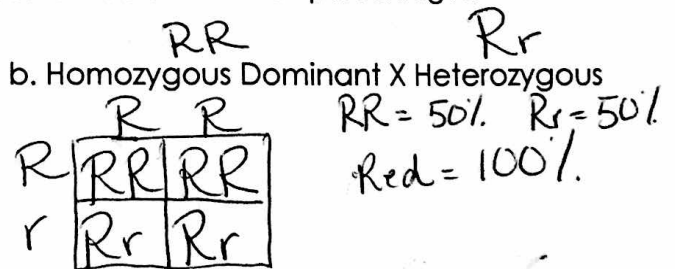 RR Rr
b. Homozygous Dominant X Heterozygous
R R RR = 50% Rr = 50%
R RR RR Red = 100%.
r Rr Rr